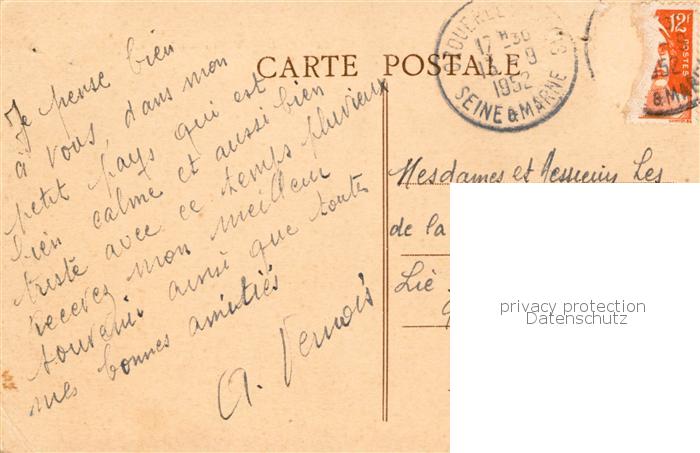 CARTE POSTALE
Je pense bien
à vous, dans mon
petit pays qui est
bien calme et aussi bien
triste avec ce temps pluvieux
recevez mon meilleur
souvenir ainsi que toutes
mes bonnes amitiés
A. Vernois
17 H 30
9
1952
SEINE & MARNE
12F
POSTES
195
& MAR
Mesdames et Messieurs Les
de la
Lié
privacy protection
Datenschutz